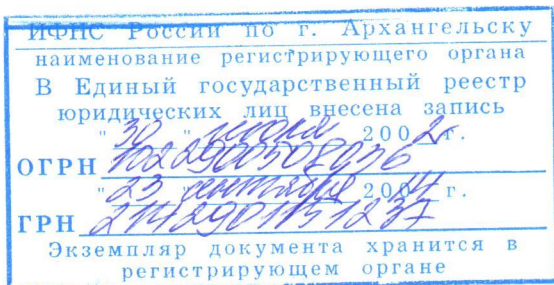 ИФНС России по г. Архангельску
наименование регистрирующего органа
В Единый государственный реестр
юридических лиц внесена запись
"30" июля 2002 г.
ОГРН 1022900508036
"23" сентября 2014 г.
ГРН 2142901151237
Экземпляр документа хранится в
регистрирующем органе